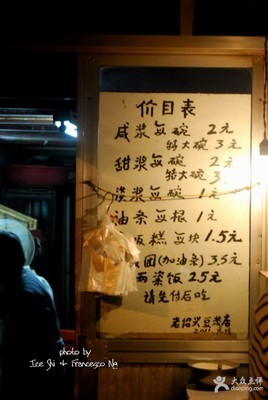 价目表
咸浆每碗 2元
特大碗 3元
甜浆每碗 2元
特大碗 3元
淡浆每碗 1元
油条每根 1元
饭糕每块 1.5元
饭团(加油条) 3.5元
两菜饭 2.5元
请先付后吃
老绍兴豆浆店
photo by
Ice Shi & Francesco Ng
大众点评
dianping.com